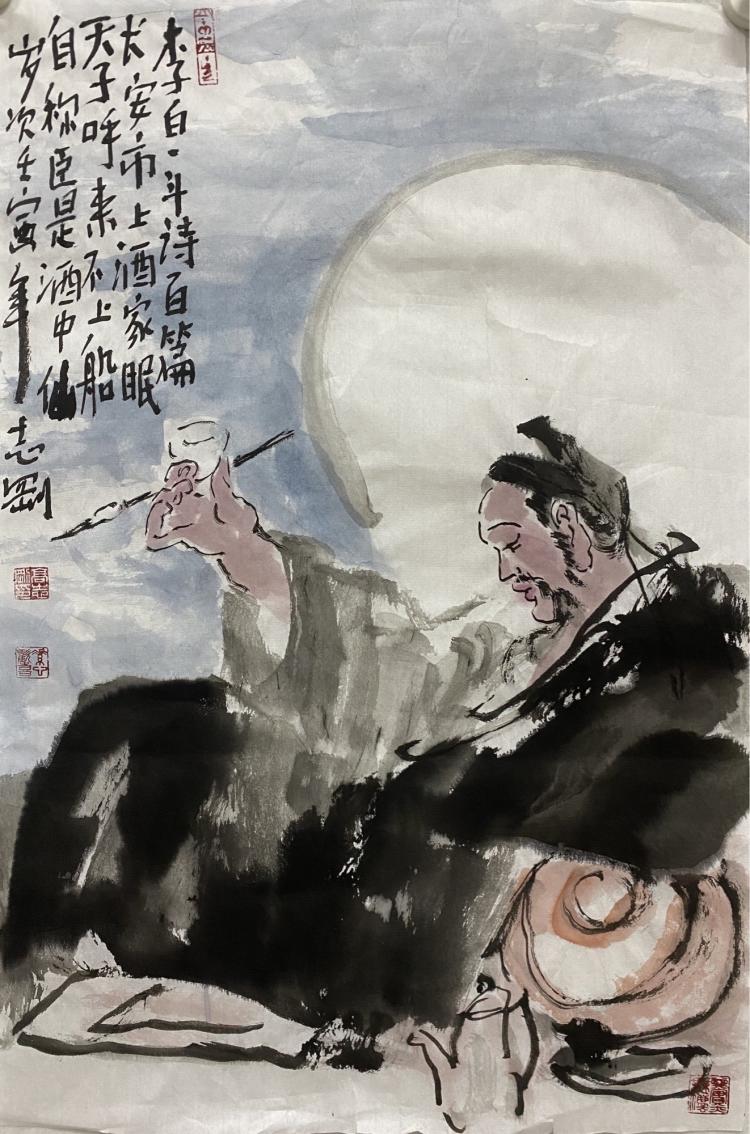 李白一斗诗百篇
长安市上酒家眠
天子呼来不上船
自称臣是酒中仙
岁次壬寅年 志剛